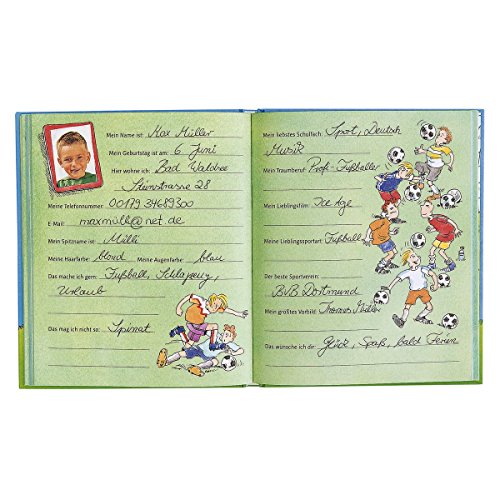 Mein Name ist: Max Müller
Mein Geburtstag ist am: 6 Juni
Hier wohne ich: Bad Waldsee
Steinstrasse 28
Meine Telefonnummer: 00179 34689300
E-Mail: maxmüll@net.de
Mein Spitzname ist: Mülli
Meine Haarfarbe: blond Meine Augenfarbe: blau
Das mache ich gern: Fußball, Schlagzeug,
Urlaub
Das mag ich nicht so: Spinat
Mein liebstes Schulfach: Sport, Deutsch
Musik
Mein Traumberuf: Profi-Fußballer
Mein Lieblingsfilm: Ice Age
Meine Lieblingssportart: Fußball
Der beste Sportverein:
BVB Dortmund
Mein größtes Vorbild: Thomas Müller
Das wünsche ich dir: Glück, Spaß, bald Ferien